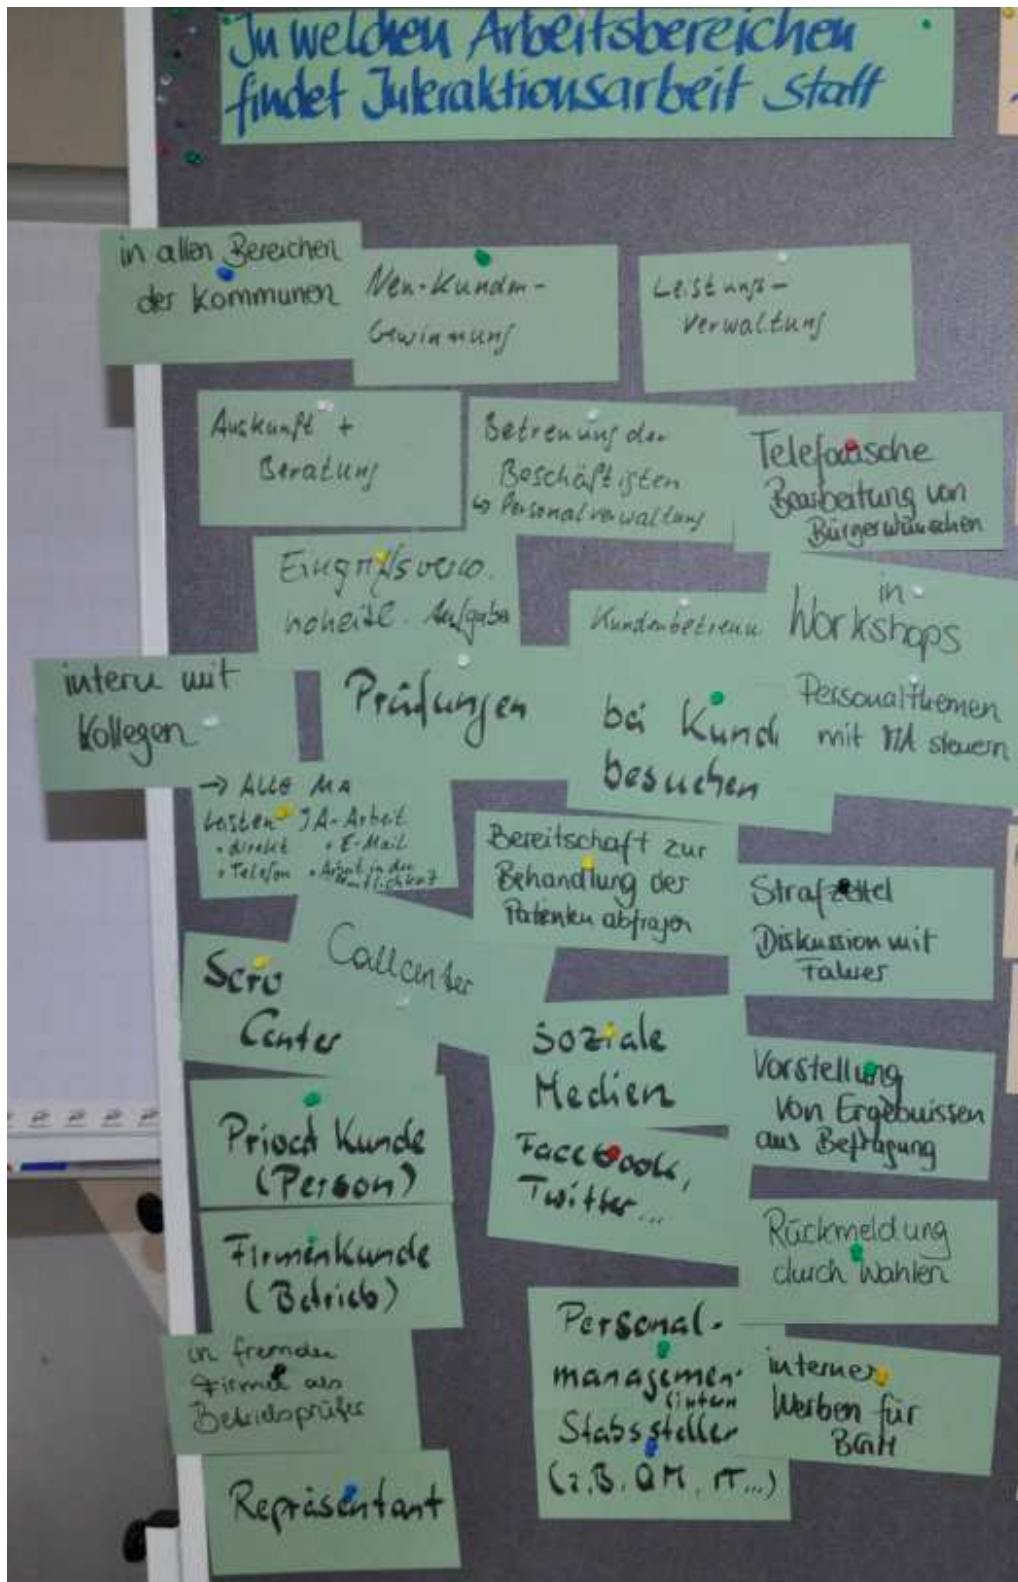 In welchen Arbeitsbereichen
findet Interaktionsarbeit statt
in allen Bereichen
der Kommunen
Neu-Kunden-
Gewinnung
Leistungs-
verwaltung
Auskunft +
Beratung
Betreuung der
Beschäftigten
↳ Personalverwaltung
Telefonische
Bearbeitung von
Bürgerwünschen
Eingriffsverw.
hoheitl. Aufgabe
Kundenbetreuu
in
Workshops
intern mit
Kollegen
Prüfungen
bei Kund
besuchen
Personalthemen
mit MA steuern
→ ALLE MA
leisten IA-Arbeit
• direkt • E-Mail
• Telefon • Arbeit in der
Öffentlichkeit
Bereitschaft zur
Behandlung der
Patienten abfragen
Strafzettel
Diskussion mit
Fahrer
Callcenter
Serv
Center
Soziale
Medien
Vorstellung
von Ergebnissen
aus Befragung
Privat Kunde
(Person)
Facebook,
Twitter...
Firmenkunde
(Betrieb)
Rückmeldung
durch Wahlen
in fremder
Firma als
Betriebsprüfer
Personal-
managemen
(intern
Stabsstellen
(z.B. QM, IT...)
internes
Werben für
BGM
Repräsentant